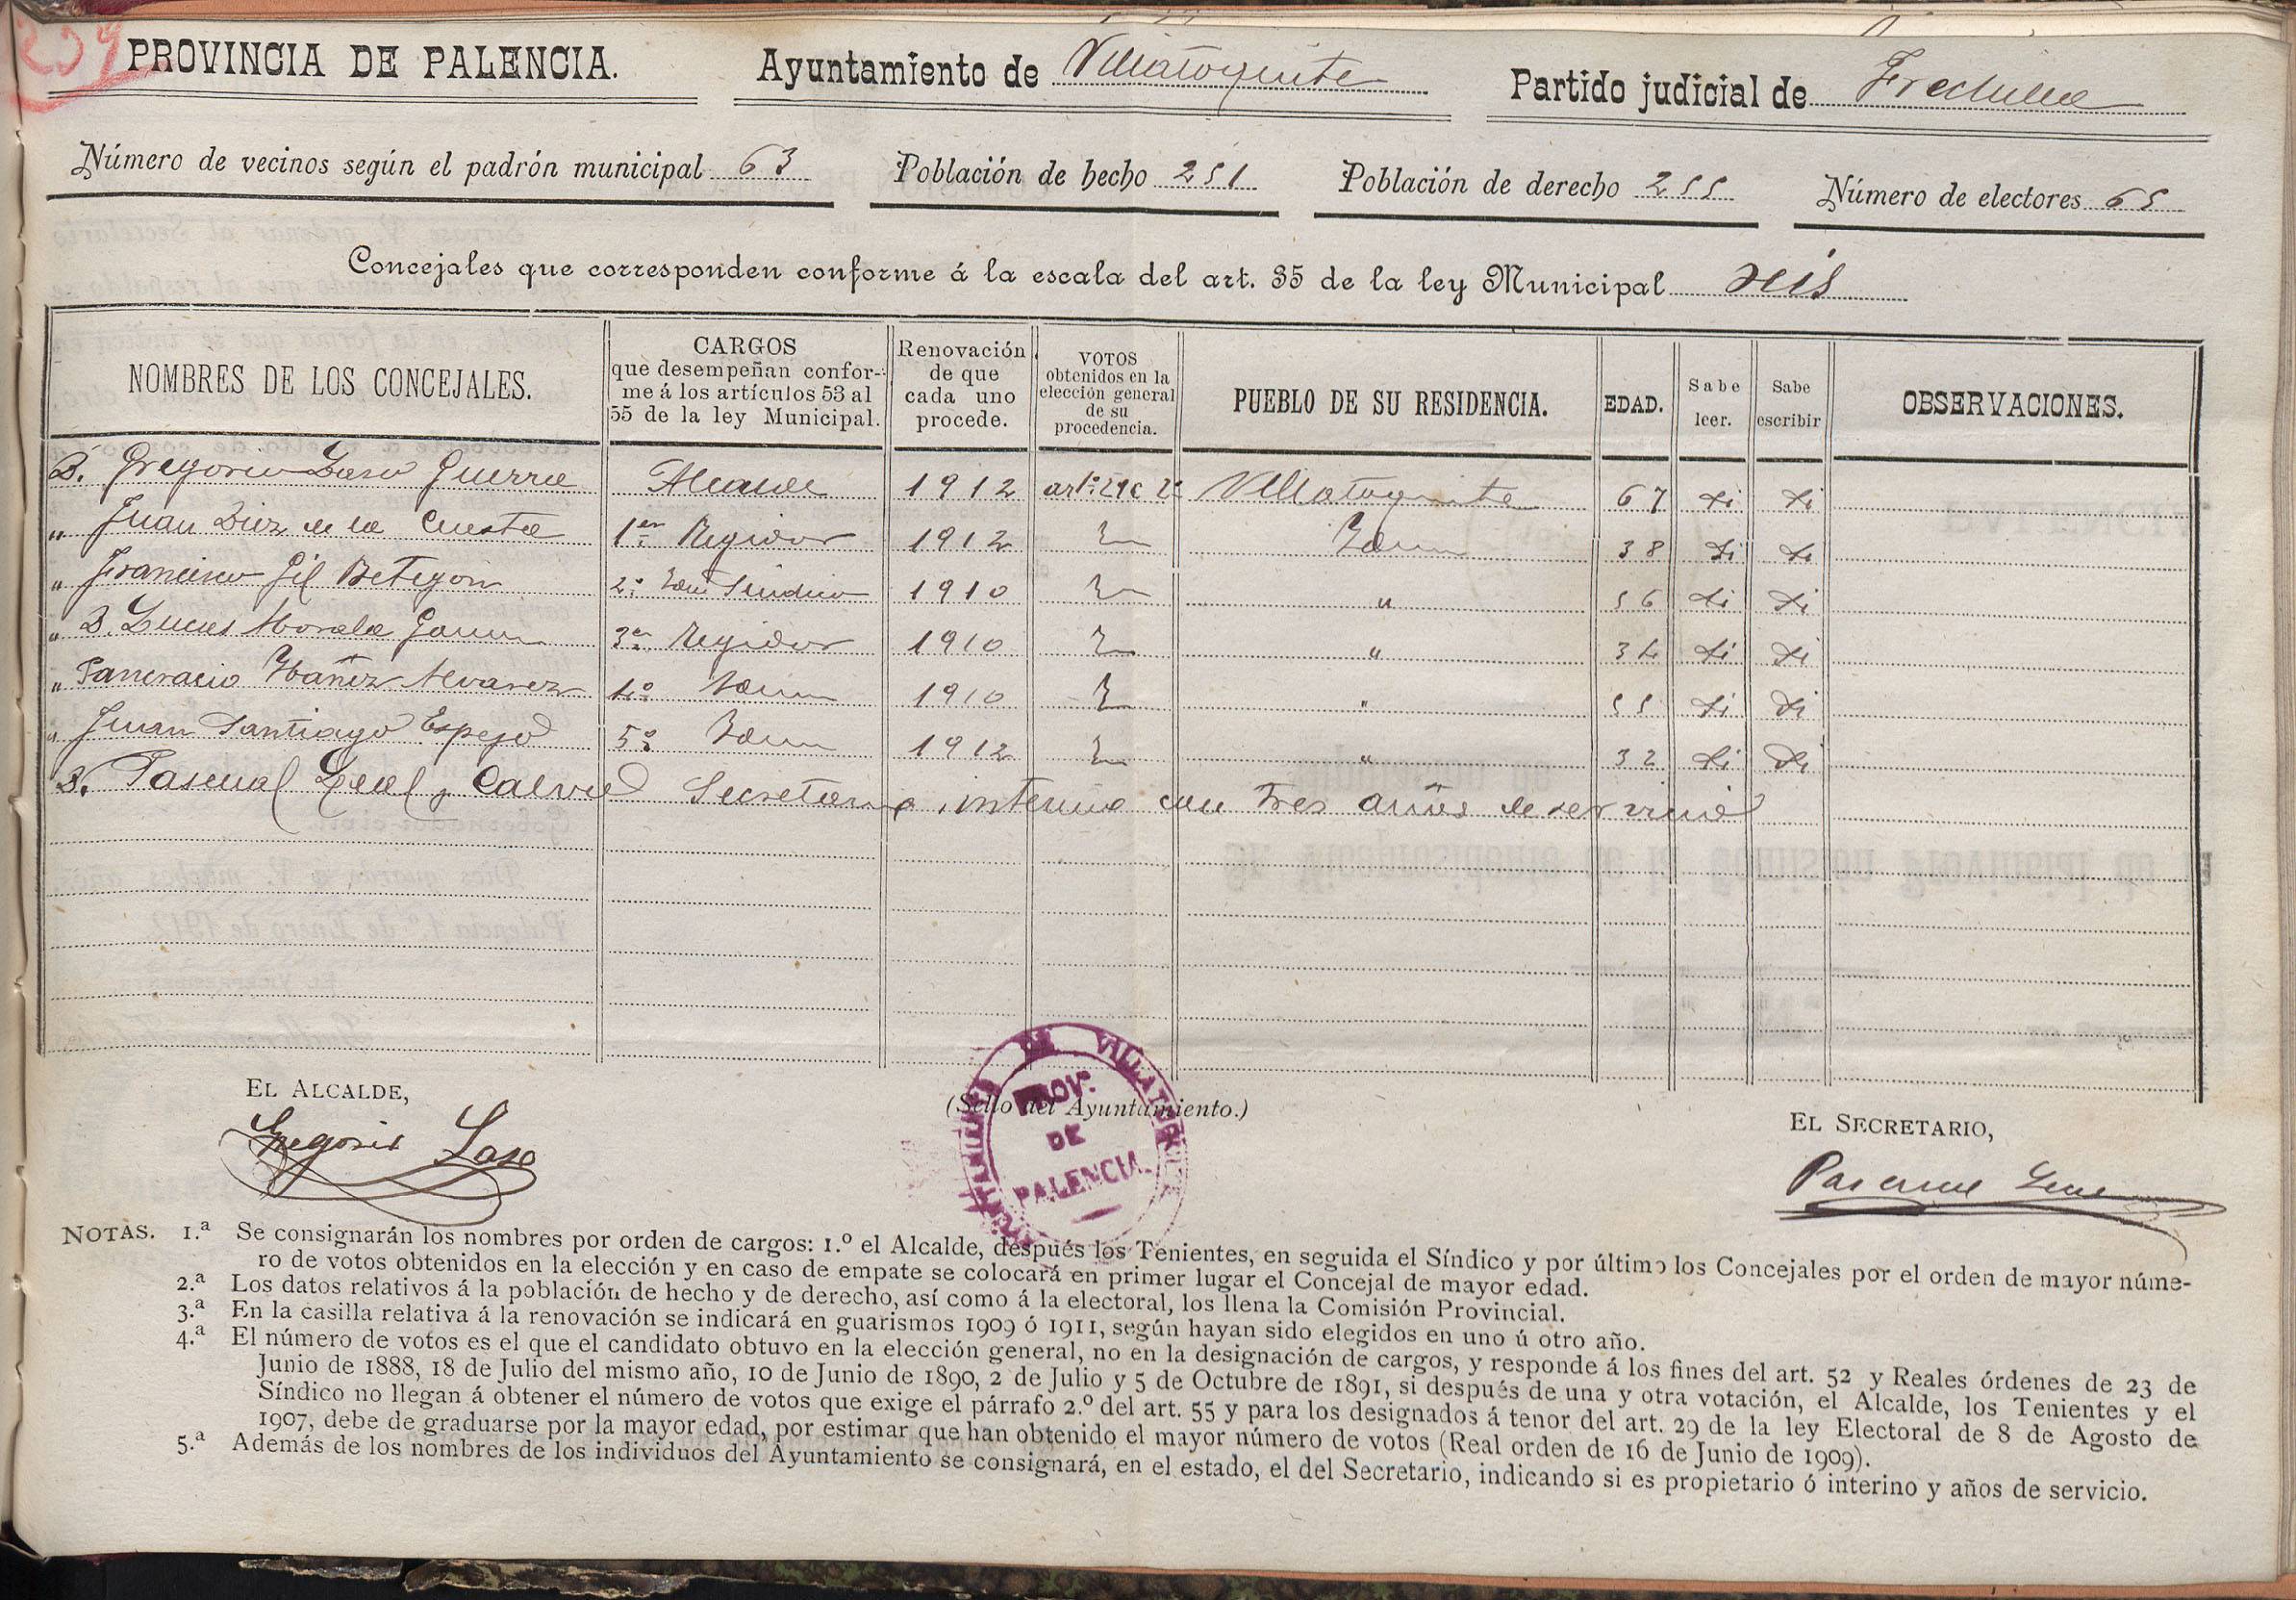 259
PROVINCIA DE PALENCIA.
Ayuntamiento de Villatoquite
Partido judicial de Frechilla
Número de vecinos según el padrón municipal 63
Población de hecho 251
Población de derecho 255
Número de electores 65
Concejales que corresponden conforme á la escala del art. 35 de la ley Municipal seis
NOMBRES DE LOS CONCEJALES.
CARGOS
que desempeñan confor-
me á los artículos 53 al
55 de la ley Municipal.
Renovación
de que
cada uno
procede.
VOTOS
obtenidos en la
elección general
de su
procedencia.
PUEBLO DE SU RESIDENCIA.
EDAD.
Sabe
leer.
Sabe
escribir
OBSERVACIONES.
D. Gregorio Laso Guerra Alcalde 1912 artº 29 Villatoquite 67 si si
" Juan Diez de la Cuesta 1er Regidor 1912 Idem 38 si si
" Francisco Gil Betegon 2º Idem Sindico 1910 " 56 si si
" D. Lucas Morala 3er Regidor 1910 " 34 si si
" Pancracio Ybañez Alvarez 4º Idem 1910 " 55 si si
" Juan Santiago Espejo 5º Idem 1912 " 32 si si
D. Pascual Leal y Calvo Secretario interino con tres años de servicio
EL ALCALDE,
Gregorio Laso
(Sello del Ayuntamiento.)
PROV.
DE
PALENCIA
EL SECRETARIO,
Pascual Leal
NOTAS. 1.ª Se consignarán los nombres por orden de cargos: 1.º el Alcalde, después los Tenientes, en seguida el Síndico y por último los Concejales por el orden de mayor núme-
ro de votos obtenidos en la elección y en caso de empate se colocará en primer lugar el Concejal de mayor edad.
2.ª Los datos relativos á la población de hecho y de derecho, así como á la electoral, los llena la Comisión Provincial.
3.ª En la casilla relativa á la renovación se indicará en guarismos 1909 ó 1911, según hayan sido elegidos en uno ú otro año.
4.ª El número de votos es el que el candidato obtuvo en la elección general, no en la designación de cargos, y responde á los fines del art. 52 y Reales órdenes de 23 de
Junio de 1888, 18 de Julio del mismo año, 10 de Junio de 1890, 2 de Julio y 5 de Octubre de 1891, si después de una y otra votación, el Alcalde, los Tenientes y el
Síndico no llegan á obtener el número de votos que exige el párrafo 2.º del art. 55 y para los designados á tenor del art. 29 de la ley Electoral de 8 de Agosto de
1907, debe de graduarse por la mayor edad, por estimar que han obtenido el mayor número de votos (Real orden de 16 de Junio de 1909).
5.ª Además de los nombres de los individuos del Ayuntamiento se consignará, en el estado, el del Secretario, indicando si es propietario ó interino y años de servicio.